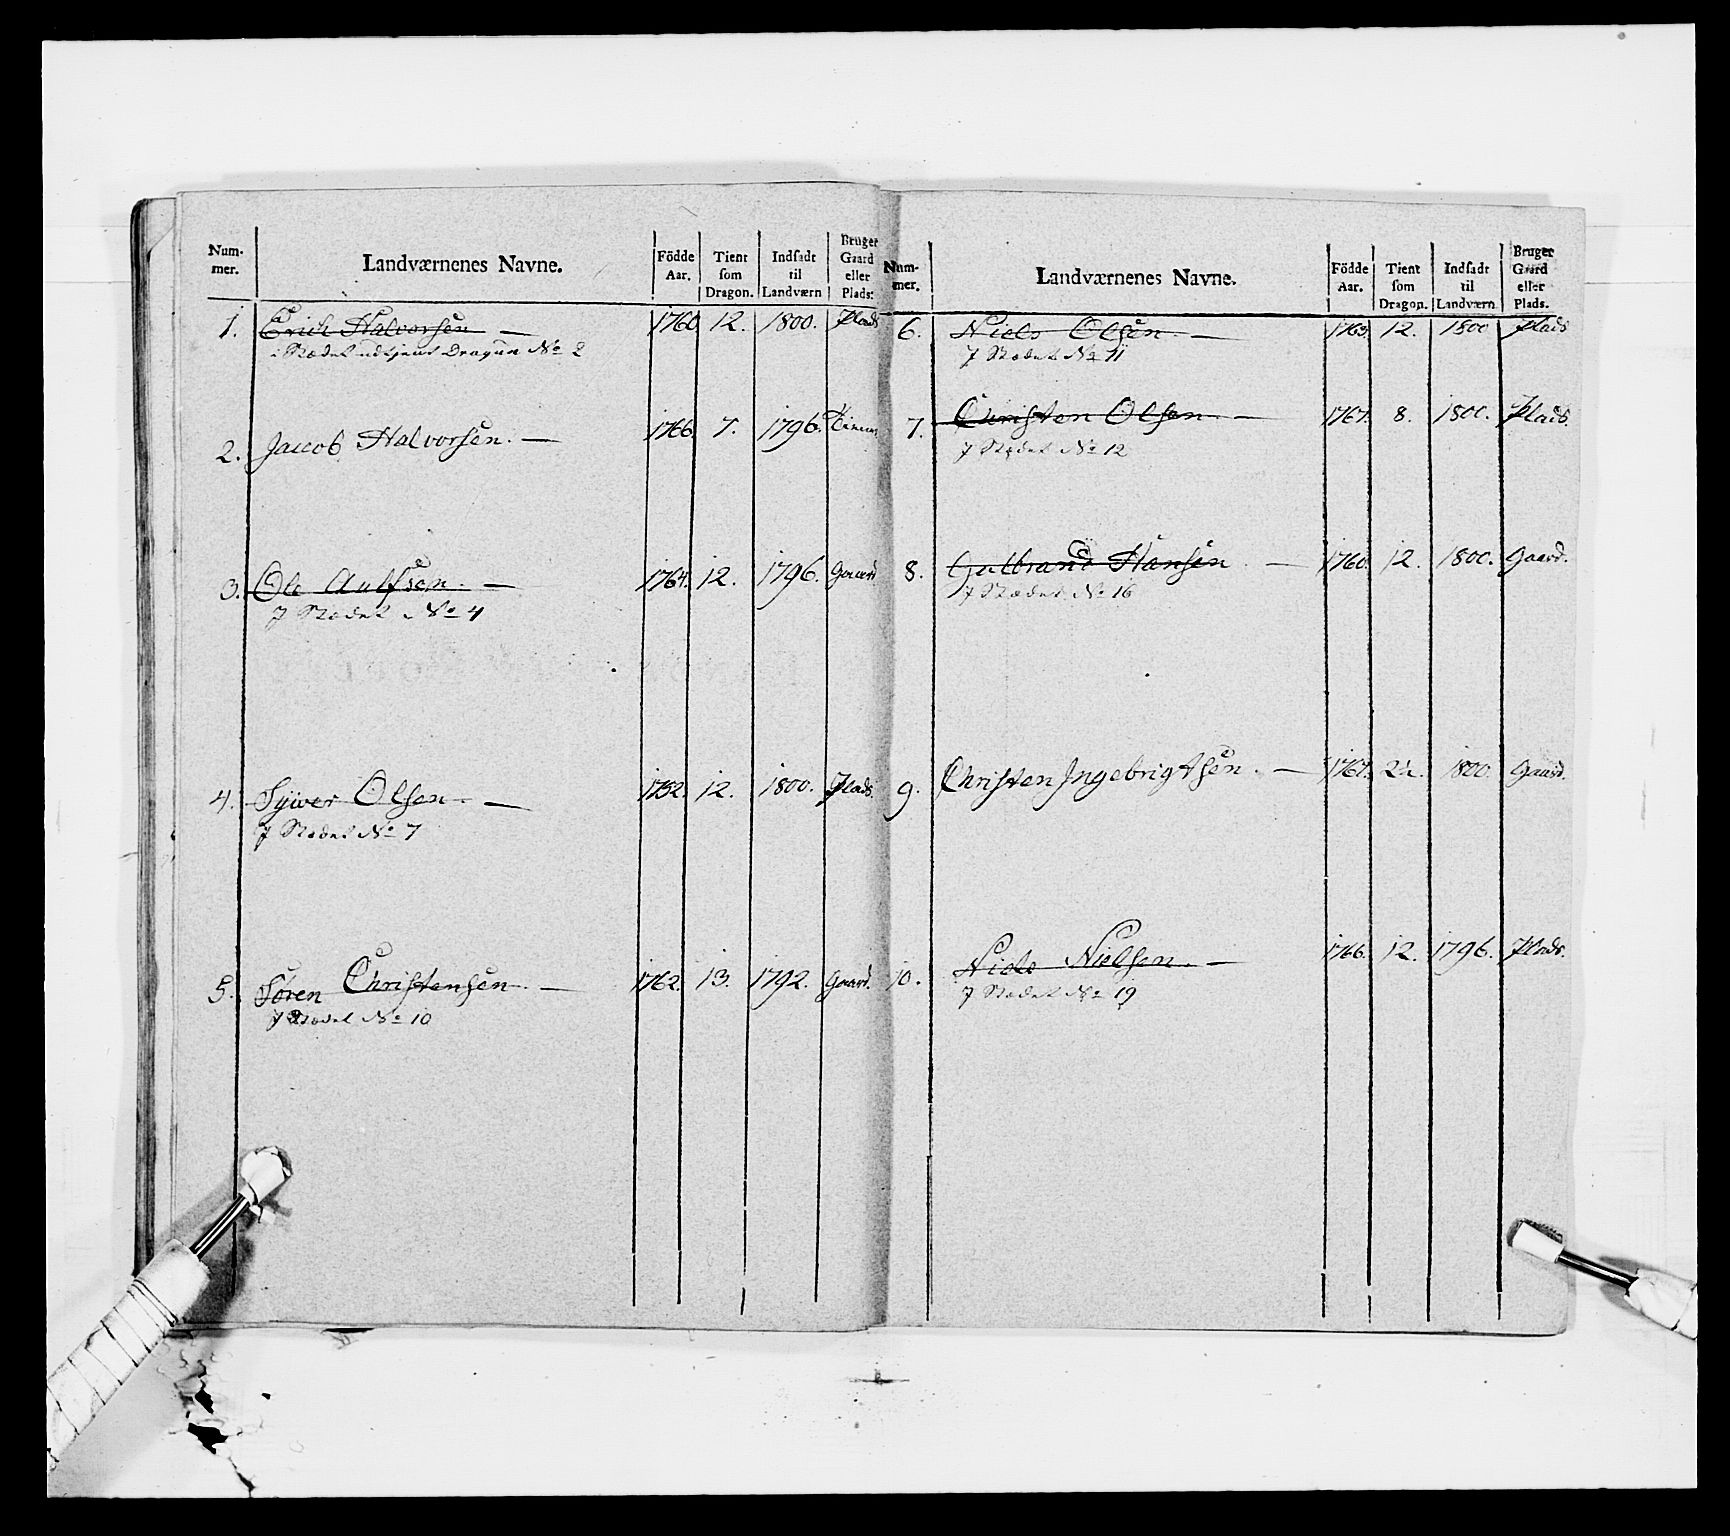 Num-
mer.
Landværnenes Navne.
Födde
Aar.
Tient
som
Dragon.
Indsadt
til
Landværn
Bruger
Gaard
eller
Plads:
1. Erich Halvorsen — 1760 12. 1800. Plads
i Stædet udtjent Dragun No 2
2. Jacob Halvorsen. — 1766. 7. 1796.
3. Ole — 1764. 12. 1796. Gaard
J Stædet No 4
4. Sywer Olsen — 1752. 12. 1800. Plads.
J Stædet No 7
5. Sören Christensen. — 1762. 13. 1792. Gaard.
J Stædet No 10
Num-
mer.
Landværnenes Navne.
Födde
Aar.
Tient
som
Dragon.
Indsadt
til
Landværn
Bruger
Gaard
eller
Plads.
6. Niels Olsen. — 1763. 12. 1800 Plads
J Stædet No 11
7. Christen Olsen — 1767. 8. 1800. Plads.
J Stædet No 12
8. Gulbrand Hansen. — 1760. 12. 1800. Gaard.
J Stædet No 16
9. Christen Ingebrigtsen. — 1767. 1800. Gaard.
10. Niels Nielsen. — 1766. 12. 1796. Plads.
J Stædet No 19